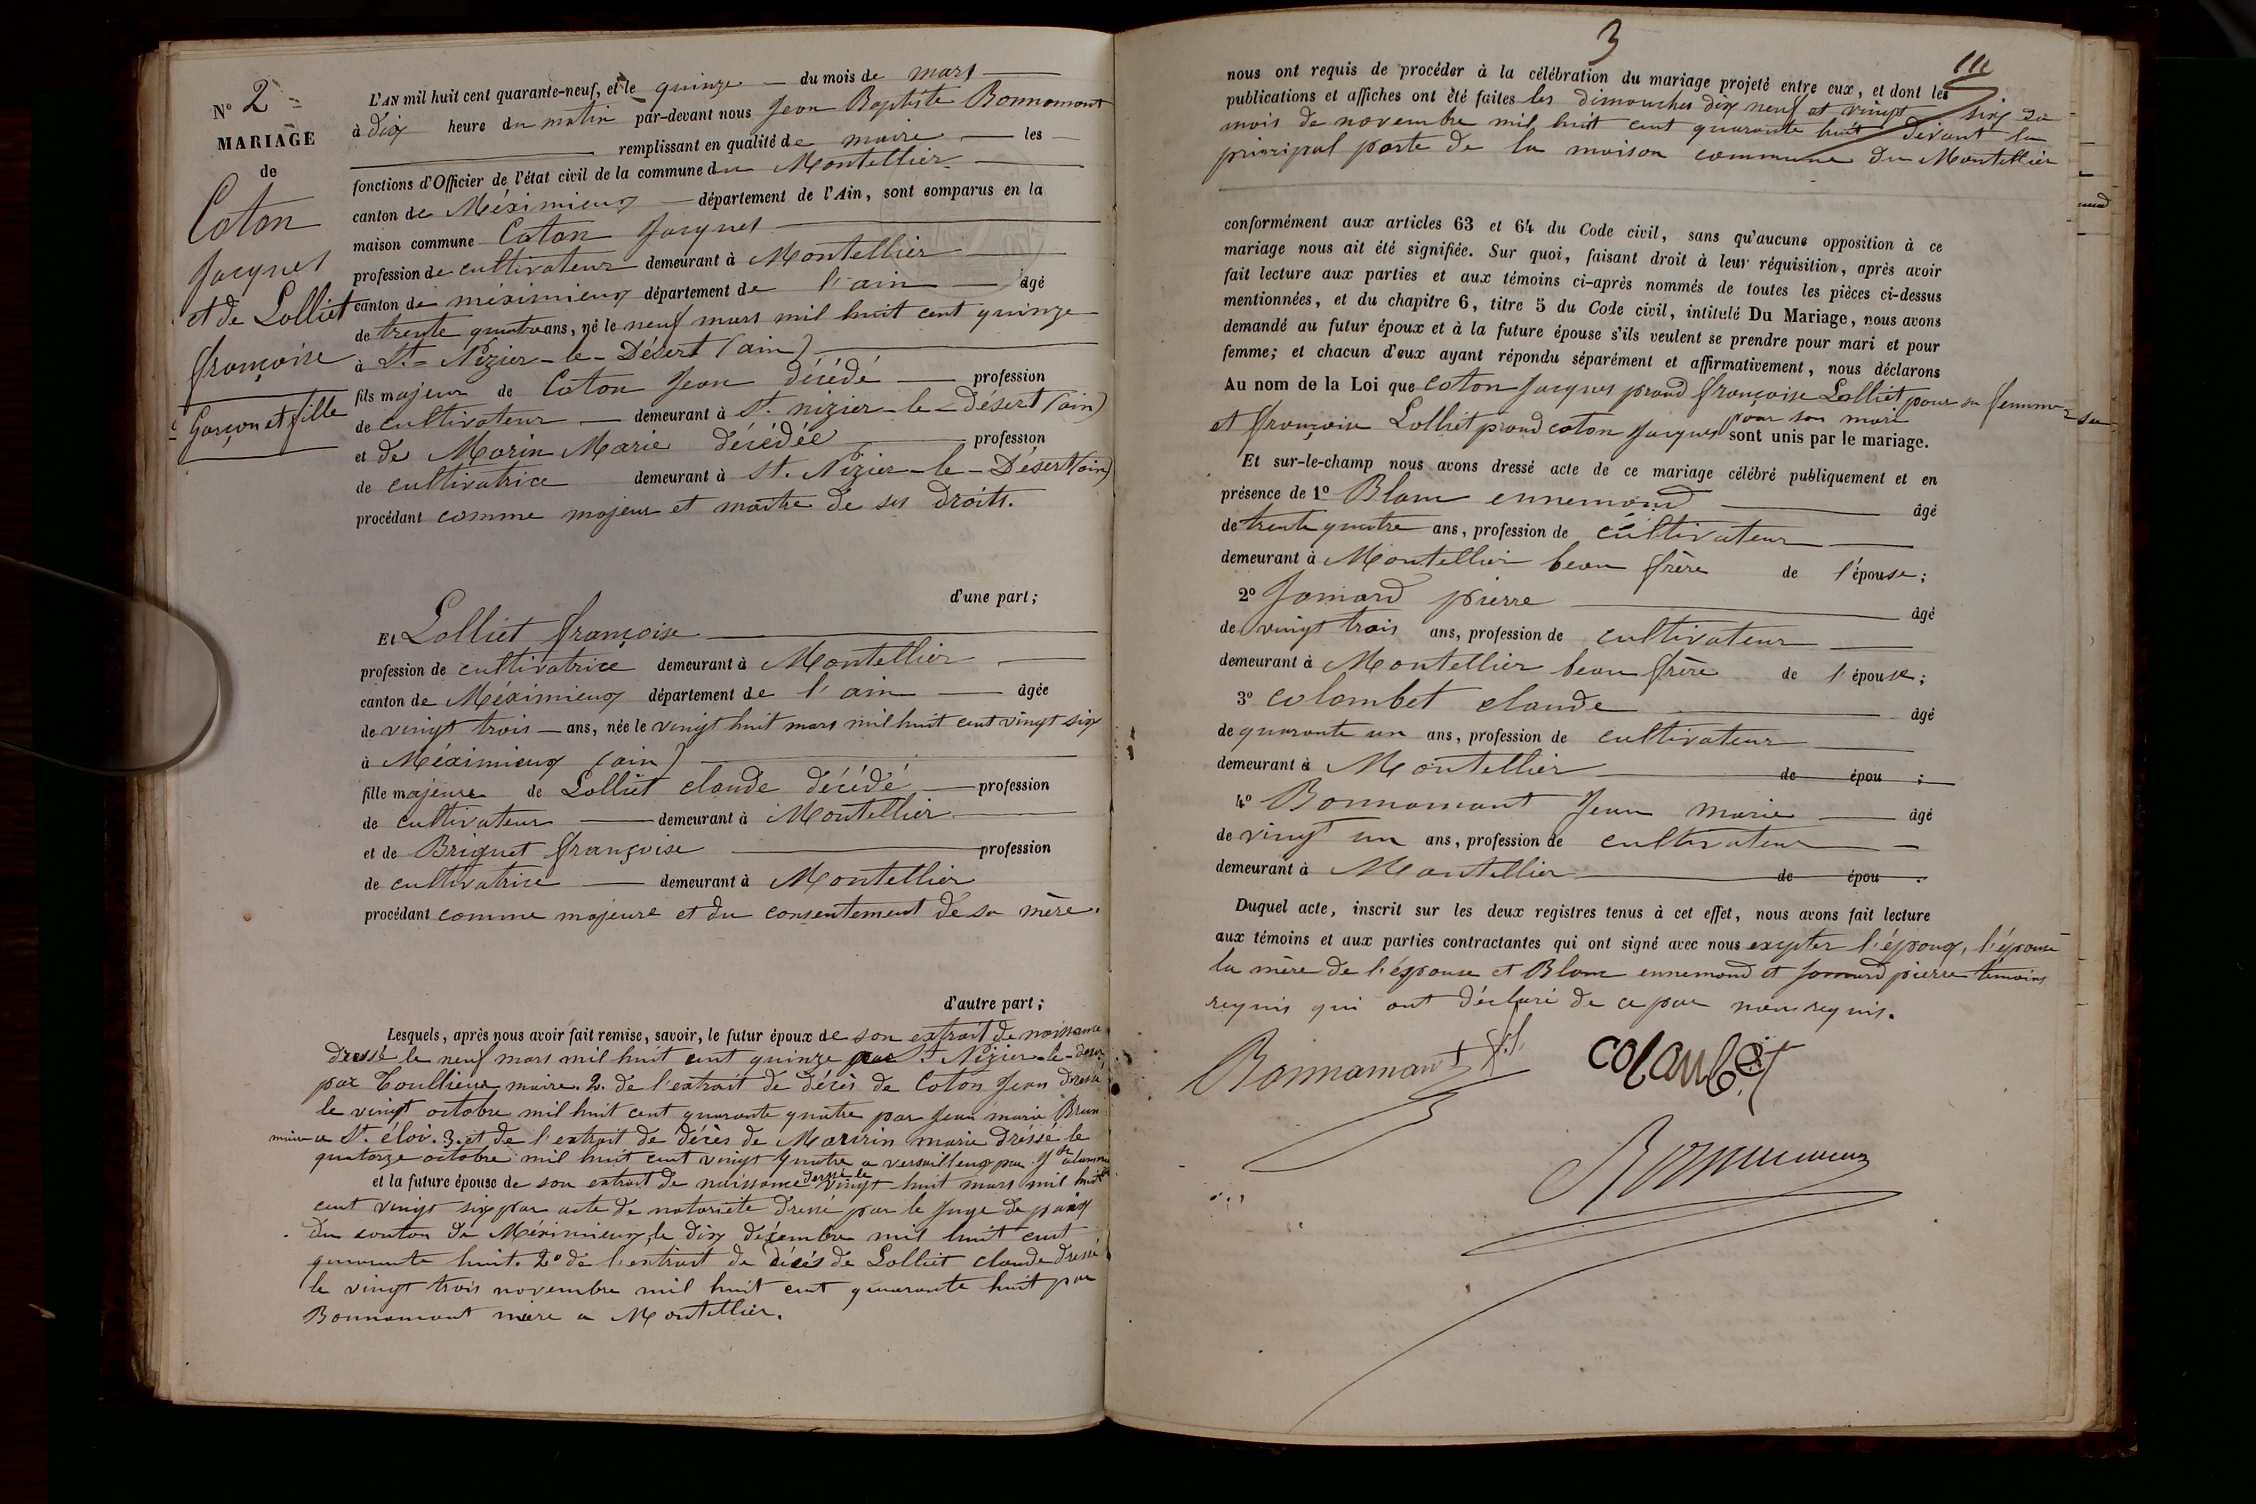 N° 2
MARIAGE
de
Coton
Jacques
et de Lolliet
françoise
Garçon et fille
L'AN mil huit cent quarante-neuf, et le quinze du mois de mars
à dix heure du matin par-devant nous Jean Baptiste Bonnamant
remplissant en qualité de maire les
fonctions d'Officier de l'état civil de la commune du Montellier
canton de Méximieux département de l'Ain, sont comparus en la
maison commune Coton Jacques
profession de cultivateur demeurant à Montellier
canton de méximieux département de l'ain âgé
de trente quatre ans, né le neuf mars mil huit cent quinze
à St. Nizier-le-Désert (ain)
fils majeur de Coton Jean décédé profession
de cultivateur demeurant à St. nizier-le-Désert (ain)
et de Morin Marie décédée profession
de cultivatrice demeurant à St. Nizier-le-Désert (ain)
procédant comme majeur et maitre de ses droits.
d'une part;
Et Lolliet françoise
profession de cultivatrice demeurant à Montellier
canton de Méximieux département de l'ain âgée
de vingt trois ans, née le vingt huit mars mil huit cent vingt six
à Méximieux (ain)
fille majeure de Lolliet claude décédé profession
de cultivateur demeurant à Montellier
et de Briquet françoise profession
de cultivatrice demeurant à Montellier
procédant comme majeure et du consentement de sa mère.
d'autre part;
Lesquels, après nous avoir fait remise, savoir, le futur époux de son extrait de naissance
dressé le neuf mars mil huit cent quinze St Nizier-le-
par maire. 2. de l'extrait de décès de Coton Jean dressé
le vingt octobre mil huit cent quarante quatre par Jean marie Brun
maire a St. éloi. 3. et de l'extrait de décès de marie dréssé le
quatorze octobre mil huit cent vingt quatre a versailleux par
et la future épouse de son extrait de naissance dressé le vingt-huit mars mil huit
cent vingt six par acte de notoriété dressé par le Juge de paix
du conton de Méximieux, le dix décembre mil huit cent
quarante huit. 2° de l'extrait de décès de Lolliet claude dressé
le vingt trois novembre mil huit cent quarante huit par
Bonnamant mère a Montellier.
3
nous ont requis de procéder à la célébration du mariage projeté entre eux, et dont les
publications et affiches ont été faites les dimanches dix neuf et vingt six du
mois de novembre mil huit cent quarante huit devant la
principal porte de la maison commune du Montellier
conformément aux articles 63 et 64 du Code civil, sans qu'aucune opposition à ce
mariage nous ait été signifiée. Sur quoi, faisant droit à leur réquisition, après avoir
fait lecture aux parties et aux témoins ci-après nommés de toutes les pièces ci-dessus
mentionnées, et du chapitre 6, titre 5 du Code civil, intitulé Du Mariage, nous avons
demandé au futur époux et à la future épouse s'ils veulent se prendre pour mari et pour
femme; et chacun d'eux ayant répondu séparément et affirmativement, nous déclarons
Au nom de la Loi que coton Jacques prend françoise Lolliet pour sa femme
et françoise Lolliet prend coton Jacques pour son mari sont unis par le mariage.
Et sur-le-champ nous avons dressé acte de ce mariage célébré publiquement et en
présence de 1° Blanc ennemond âgé
de trente quatre ans, profession de cultivateur
demeurant à Montellier beau frère de l'épouse;
2° Jomard pierre âgé
de vingt trois ans, profession de cultivateur
demeurant à Montellier beau frère de l'épouse;
3° colombet claude âgé
de quarante un ans, profession de cultivateur
demeurant à Montellier de épou ;
4° Bonnamant Jean marie âgé
de vingt un ans, profession de cultivateur
demeurant à Montellier de épou .
Duquel acte, inscrit sur les deux registres tenus à cet effet, nous avons fait lecture
aux témoins et aux parties contractantes qui ont signé avec nous excepter l'époux, l'épouse
la mère de l'épouse et Blanc ennemond et Jomard pierre témoins
requis qui ont déclaré de ce par nous requis.
Bonnamant
colambet